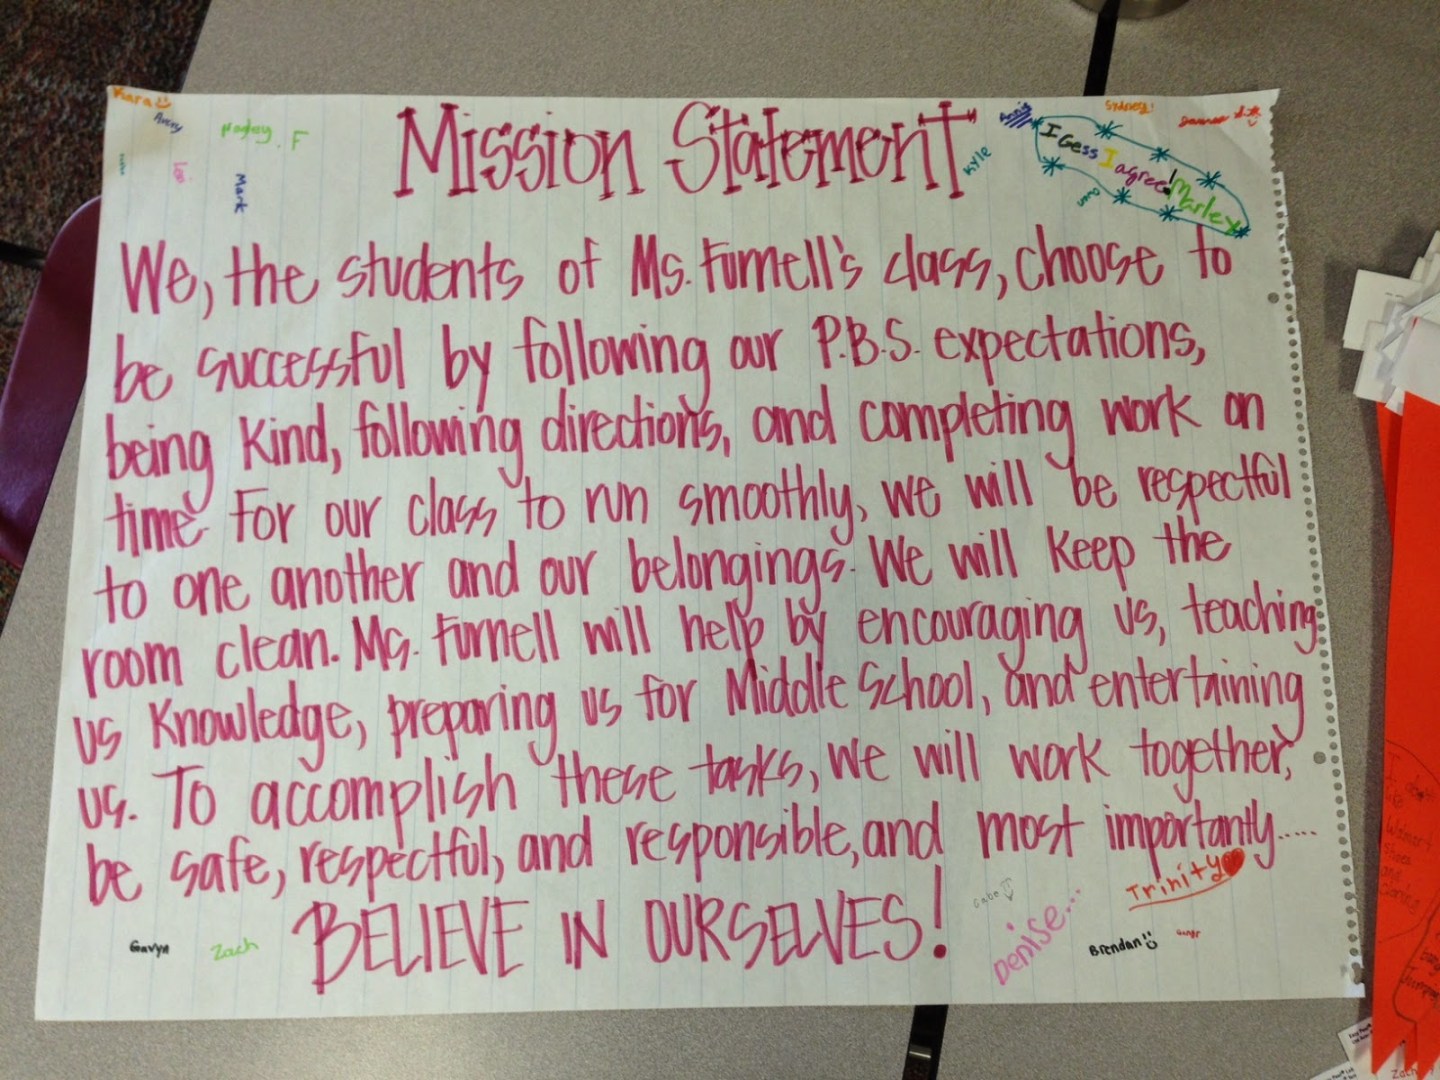 Kara
Avery
Hayley. F
Lexi
Mark
Mission Statement
Kyle
Annis
Sydney!
I Gess I agree! Marley
We, the students of Ms. Furnell's class, choose to
be successful by following our P.B.S. expectations,
being kind, following directions, and completing work on
time. For our class to run smoothly, we will be respectful
to one another and our belongings. We will keep the
room clean. Ms. Furnell will help by encouraging us, teaching
us knowledge, preparing us for Middle School, and entertaining
us. To accomplish these tasks, we will work together,
be safe, respectful, and responsible, and most importantly.....
BELIEVE IN OURSELVES!
Gavyn
Zach
Gabe
Denise...
Trinity
Brendan